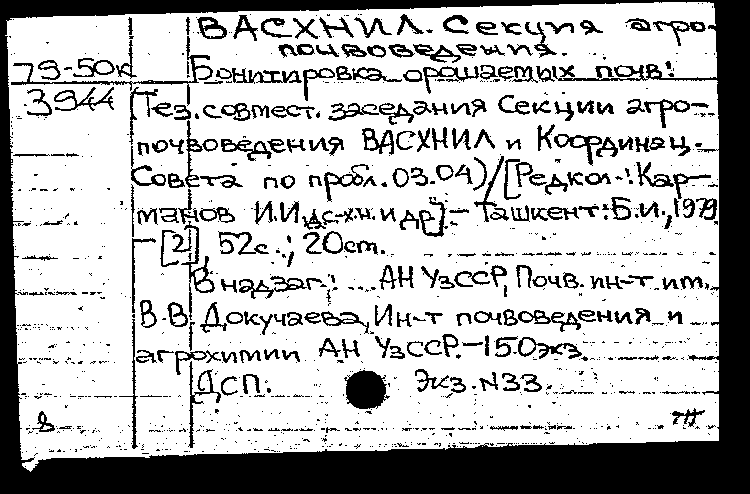 ВАСХНИЛ. Секция агро-
почвоведения.
79-50к Бонитировка орошаемых почв:
3944 (Тез. совмест. заседания Секции агро-
почвоведения ВАСХНИЛ и Координац.
Совета по пробл. 03.04)/[Редкол.: Кар-
манов И.И. д.с-х.н. и др.]- Ташкент: Б.И., 1979
- [2], 52с.; 20cm.
В надзаг.: ... АН УзССР, Почв. ин-т им.
В.В. Докучаева, Ин-т почвоведения и
агрохимии АН УзССР.-150экз.
ДСП. Экз. N33.